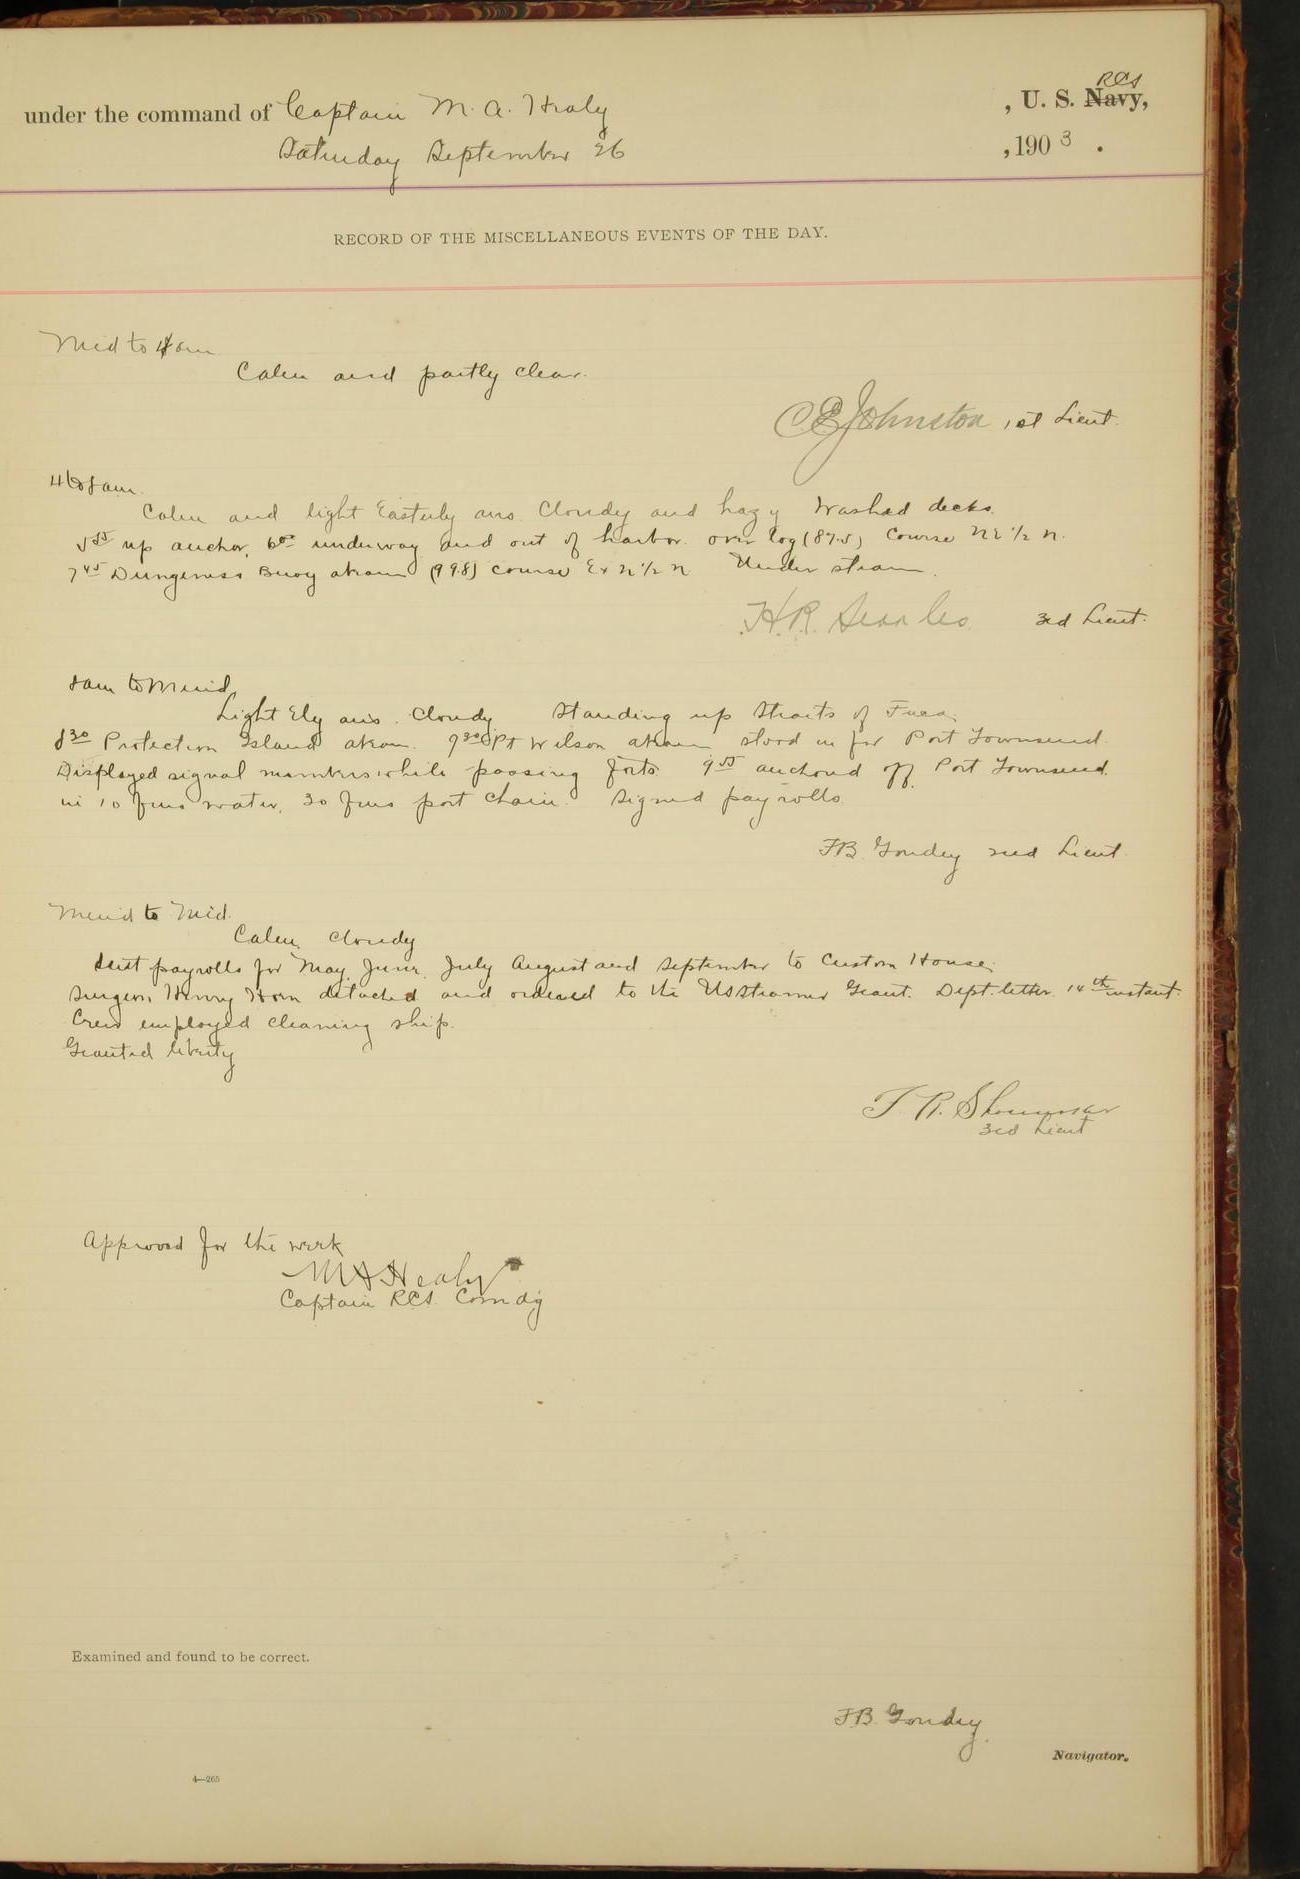 under the command of Captain M. A. Healy , U. S. Navy, RCS
Saturday September 26 , 1903 .
RECORD OF THE MISCELLANEOUS EVENTS OF THE DAY.
Mid to 4 am
Calm and partly clear.
C E Johnston 1st Lieut.
4 to 8 am.
Calm and light Easterly airs Cloudy and hazy Washed decks.
5 55 up anchor, 6 00 underway and out of harbor. over log (87.5) Course NE 1/2 N.
7 45 Dungeness Buoy abeam (99.8) course E x N 1/2 N Under steam.
H. R. Searles 3rd Lieut.
8 am to Merid.
Light Ely airs. Cloudy Standing up Straits of Fuca.
8 30 Protection Island abeam. 9 30 Pt Wilson abeam stood in for Port Townsend.
Displayed signal numbers while passing forts. 9 55 anchored off Port Townsend.
in 10 fms water, 30 fms port chain. Signed payrolls.
F.B. Goudey 2nd Lieut.
Merid to Mid.
Calm, Cloudy
Sent payrolls for May, June, July August and September to Custom House.
Surgeon Henry Horn detached and ordered to the US Steamer Grant. Dept. letter 14th instant.
Crew employed cleaning ship.
Granted liberty
T. R. 
3rd Lieut
Approved for the week
M A Healy
Captain RCS. Comdg
Examined and found to be correct.
F.B. Goudey
Navigator.
4—265